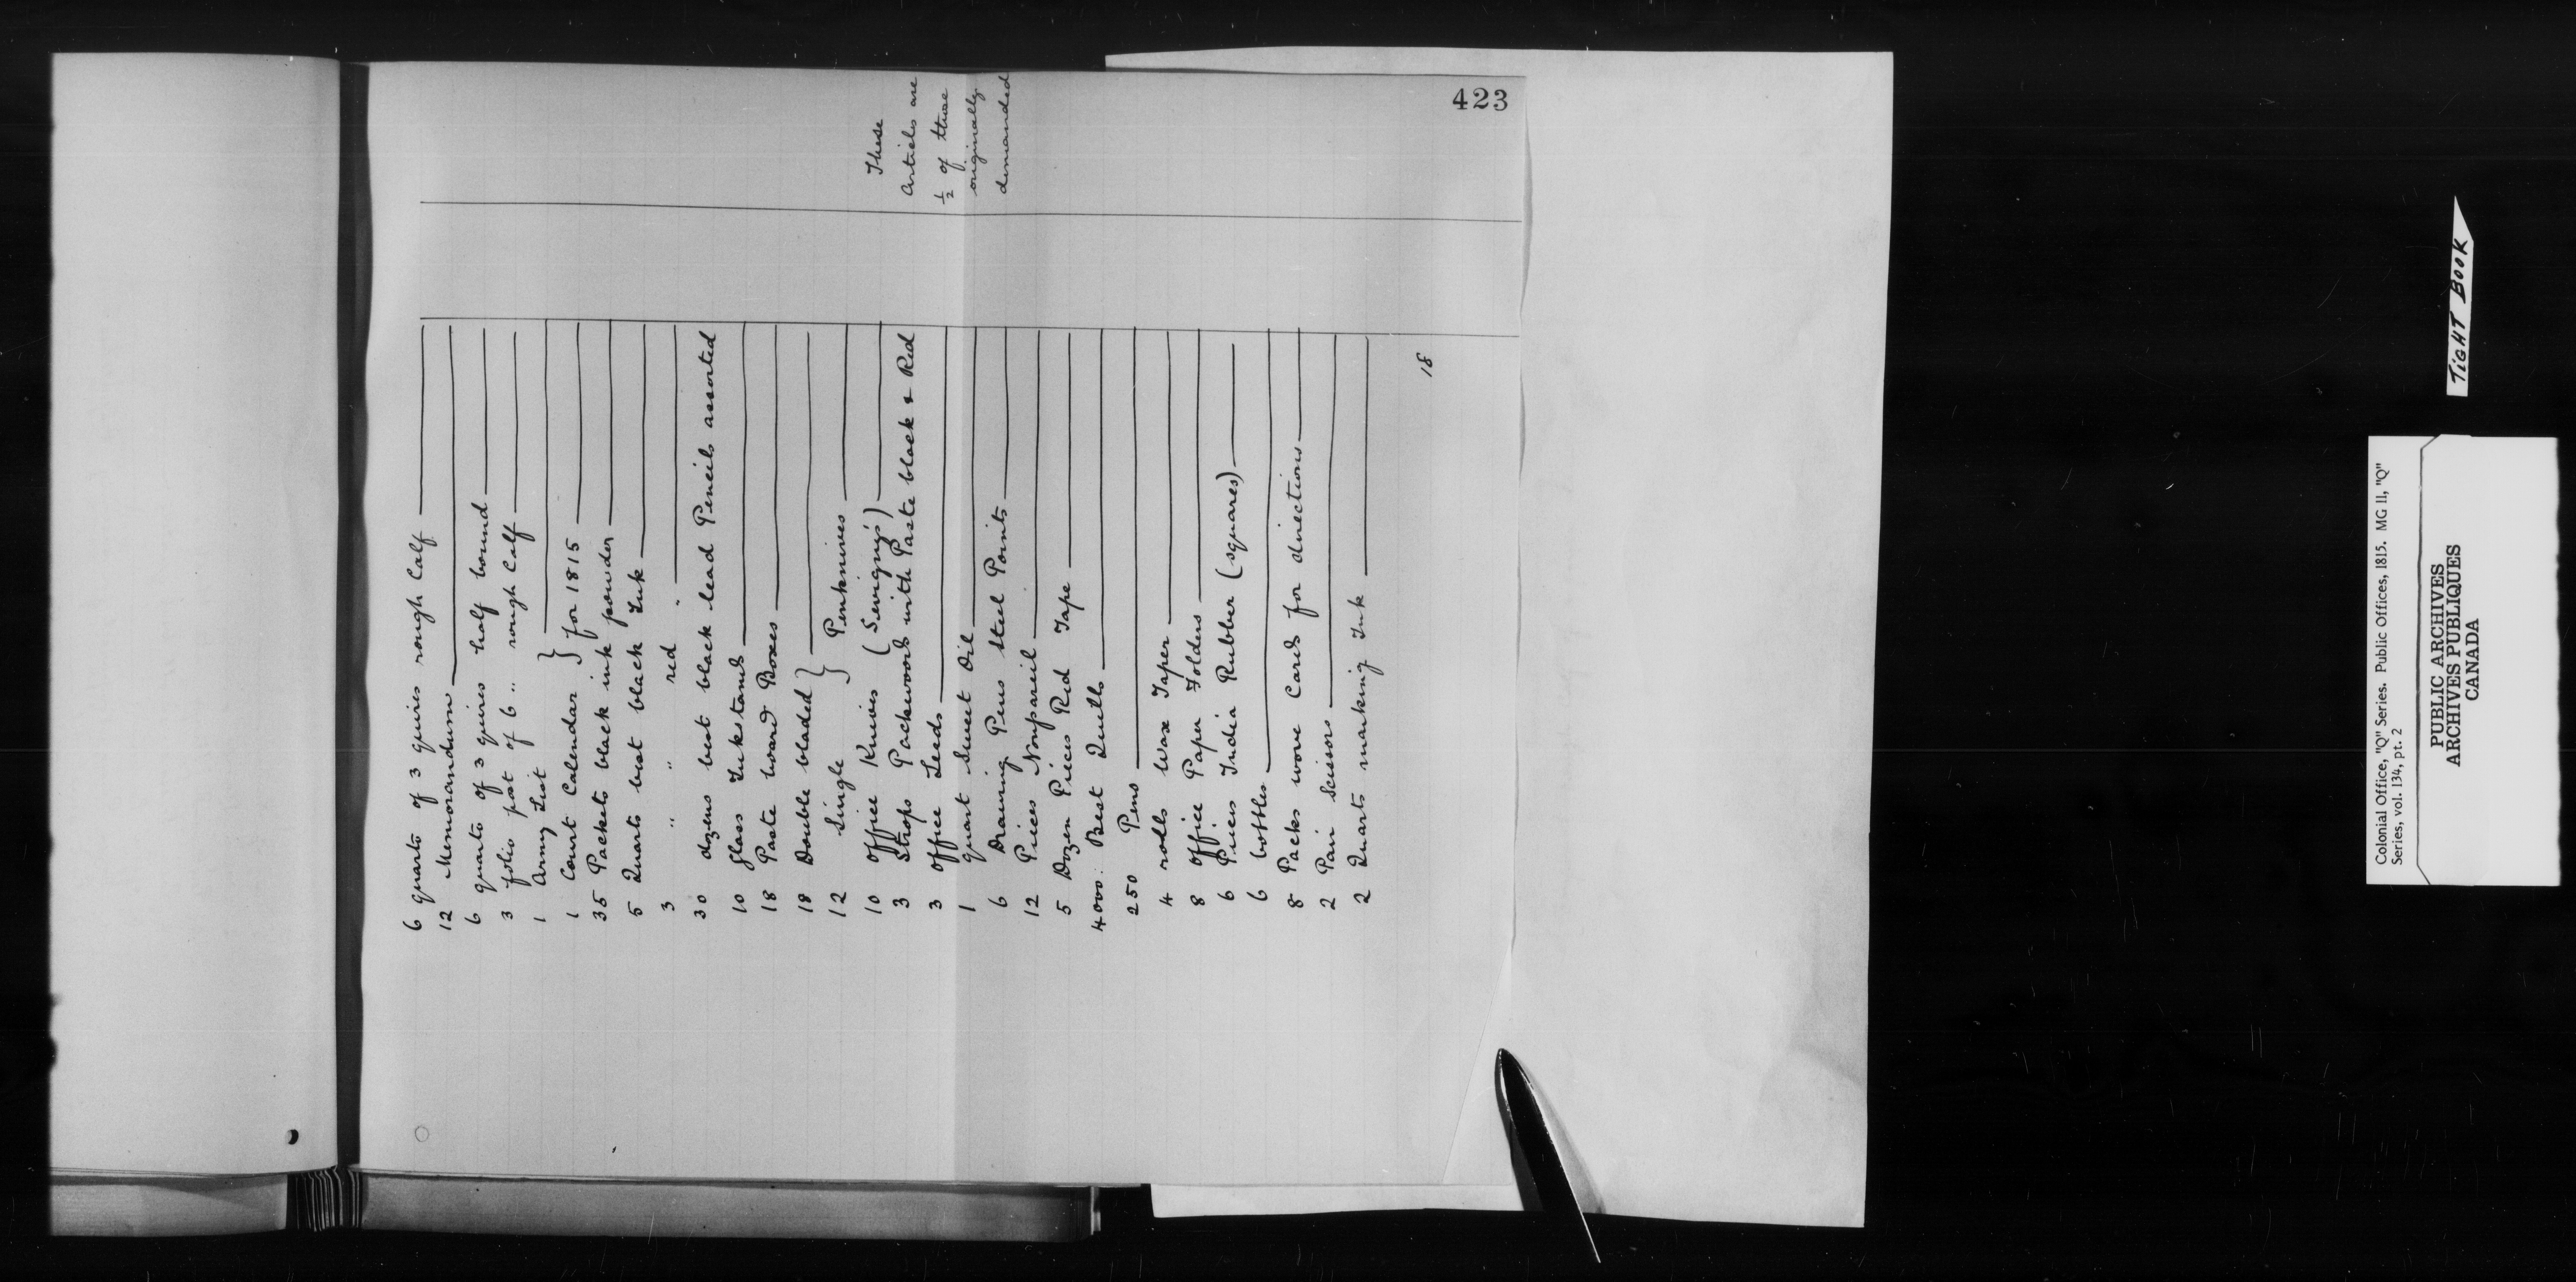 423
6 quarto of 3 quires rough Calf
12 Memorandum
6 quarto of 3 quires half bound
3 folio post of 6 " rough Calf
1 Army List }
1 Court Calendar } for 1815
35 Packets black ink powder
5 Quarts best black Ink
3 " " red "
30 dozens best black lead Pencils assorted
10 glass Inkstands
18 Paste board Boxes
18 Double bladed }
12 Single } Penknives
10 office Knives (Sevigny's)
3 Strops Packwoods with Paste black & Red
3 office Leeds
1 quart Sweet Oil
6 Drawing Pens Steel Points
12 Pieces Nonpareil
5 Dozen Pieces Red Tape
4000: Best Quills
250 Pens
4 rolls Wax Taper
8 office Paper Folders
6 Pieces India Rubber (squares)
6 bottles
8 Packs wove Cards for directions
2 Pair Scissors
2 Quarts marking Ink
These
Articles are
½ of those
originally
demanded
18
TIGHT BOOK
Colonial Office, "Q" Series. Public Offices, 1815. MG 11, "Q"
Series, vol. 134, pt. 2
PUBLIC ARCHIVES
ARCHIVES PUBLIQUES
CANADA